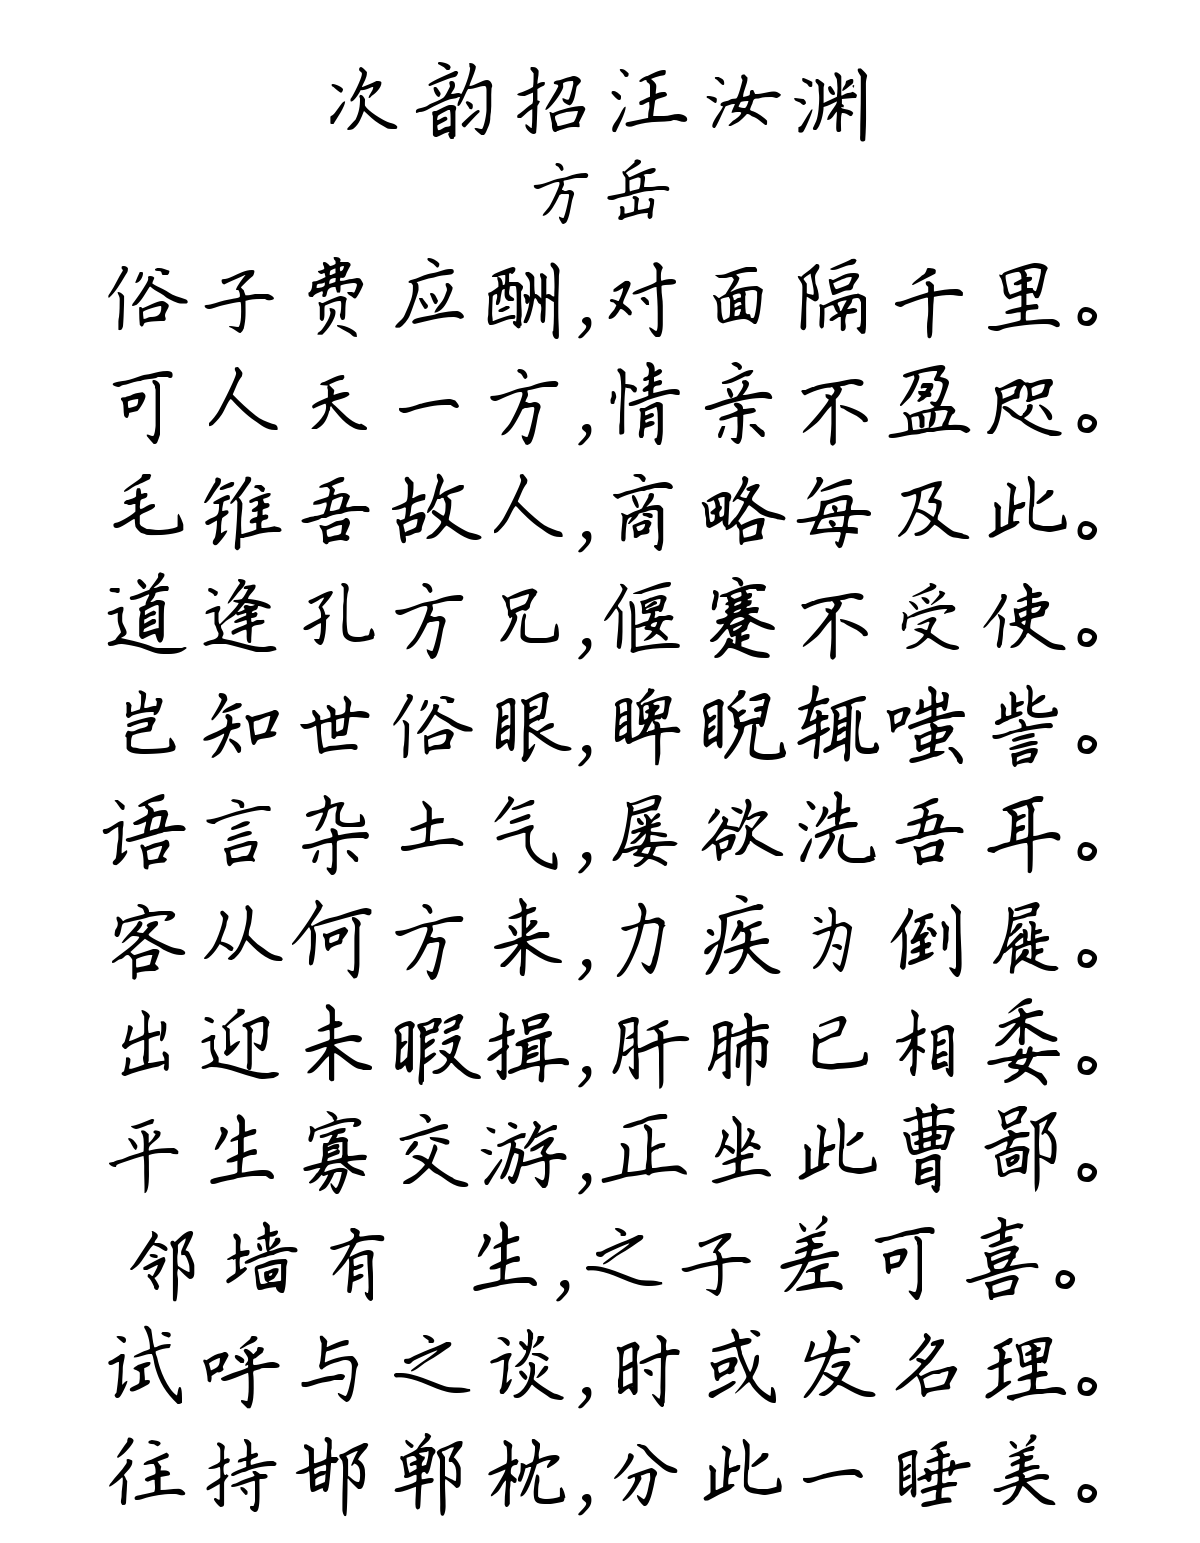 次韵招汪汝渊
方岳
俗子费应酬,对面隔千里。
可人天一方,情亲不盈咫。
毛锥吾故人,商略每及此。
道逢孔方兄,偃蹇不受使。
岂知世俗眼,睥睨辄嗤訾。
语言杂土气,屡欲洗吾耳。
客从何方来,力疾为倒屣。
出迎未暇揖,肝肺已相委。
平生寡交游,正坐此曹鄙。
邻墙有 生,之子差可喜。
试呼与之谈,时或发名理。
往持邯郸枕,分此一睡美。